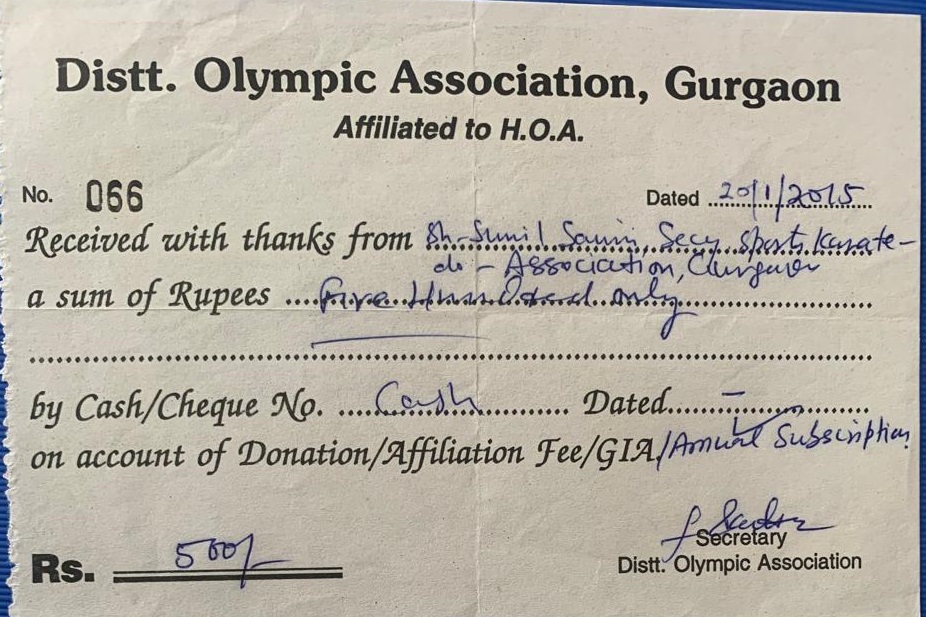 Distt. Olympic Association, Gurgaon
Affiliated to H.O.A.
No. 066 Dated 20/1/2015
Received with thanks from Sh. Sunil Saini, Secy. Sports Karate-
do - Association, Gurgaon
a sum of Rupees Five Hundred only
by Cash/Cheque No. Cash Dated –
on account of Donation/Affiliation Fee/GIA/Annual Subscription
Rs. 500/-
Secretary
Distt. Olympic Association